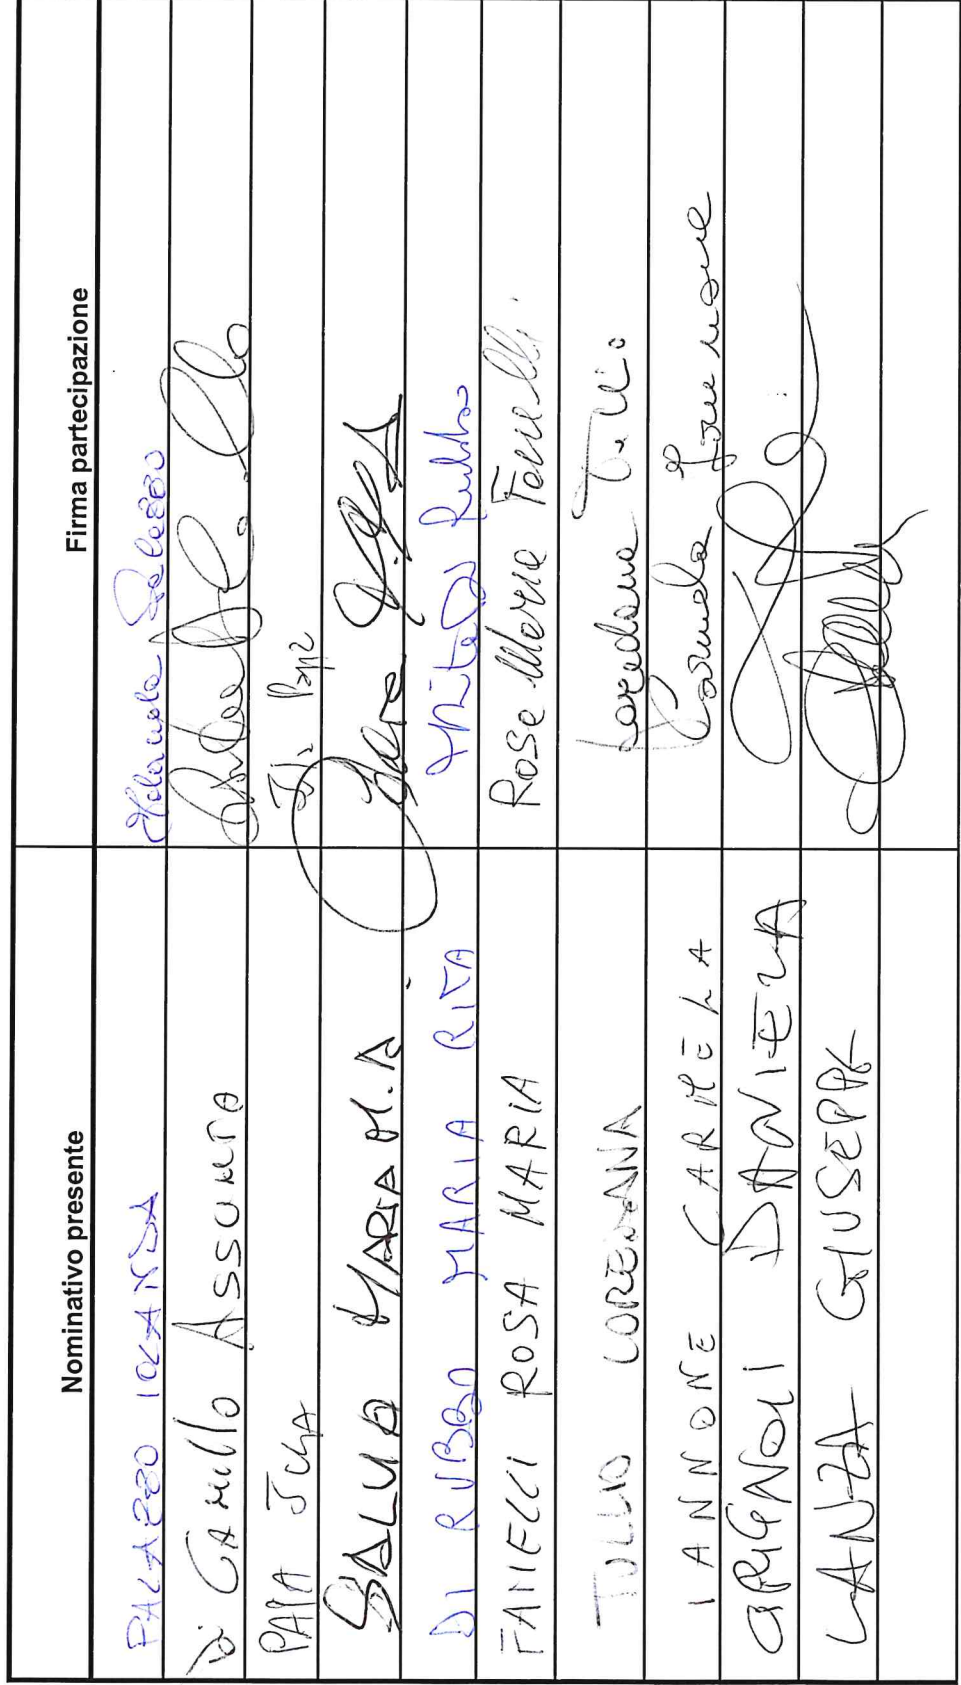 Nominativo presente Firma partecipazione
PALAZZO IOLANDA Iolanda Palazzo
Di Camillo ASSUNTA
PAPA
SALVO MARIA M.A
DI RUBBO MARIA RITA
FANELLI ROSA MARIA Rosa Maria Fanelli
TULLIO LOREDANA Loredana Tullio
IANNONE CARMELA Carmela Iannone
DANIELA
LANZA GIUSEPPE